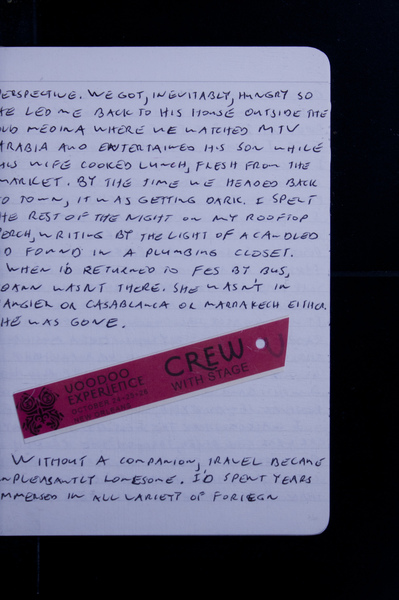 ERSPECTIVE. WE GOT, INEVITABLY, HUNGRY SO
HE LED ME BACK TO HIS HOUSE OUTSIDE THE
OLD MEDINA WHERE WE WATCHED MTV
ARABIA AND ENTERTAINED HIS SON WHILE
HIS WIFE COOKED LUNCH, FLESH FROM THE
MARKET. BY THE TIME WE HEADED BACK
TO TOWN, IT WAS GETTING DARK. I SPENT
THE REST OF THE NIGHT ON MY ROOFTOP
PERCH, WRITING BY THE LIGHT OF A CANDLE
I'D FOUND IN A PLUMBING CLOSET.
WHEN I'D RETURNED TO FES BY BUS,
WASN'T THERE. SHE WASN'T IN
TANGIER OR CASABLANCA OR MARRAKECH EITHER.
SHE WAS GONE.
VOODOO
EXPERIENCE
OCTOBER
NEW ORLEANS
CREW
WITH STAGE
WITHOUT A COMPANION, TRAVEL BECAME
UNPLEASANTLY LONESOME. I'D SPENT YEARS
IMMERSED IN ALL VARIETY OF FORIEGN